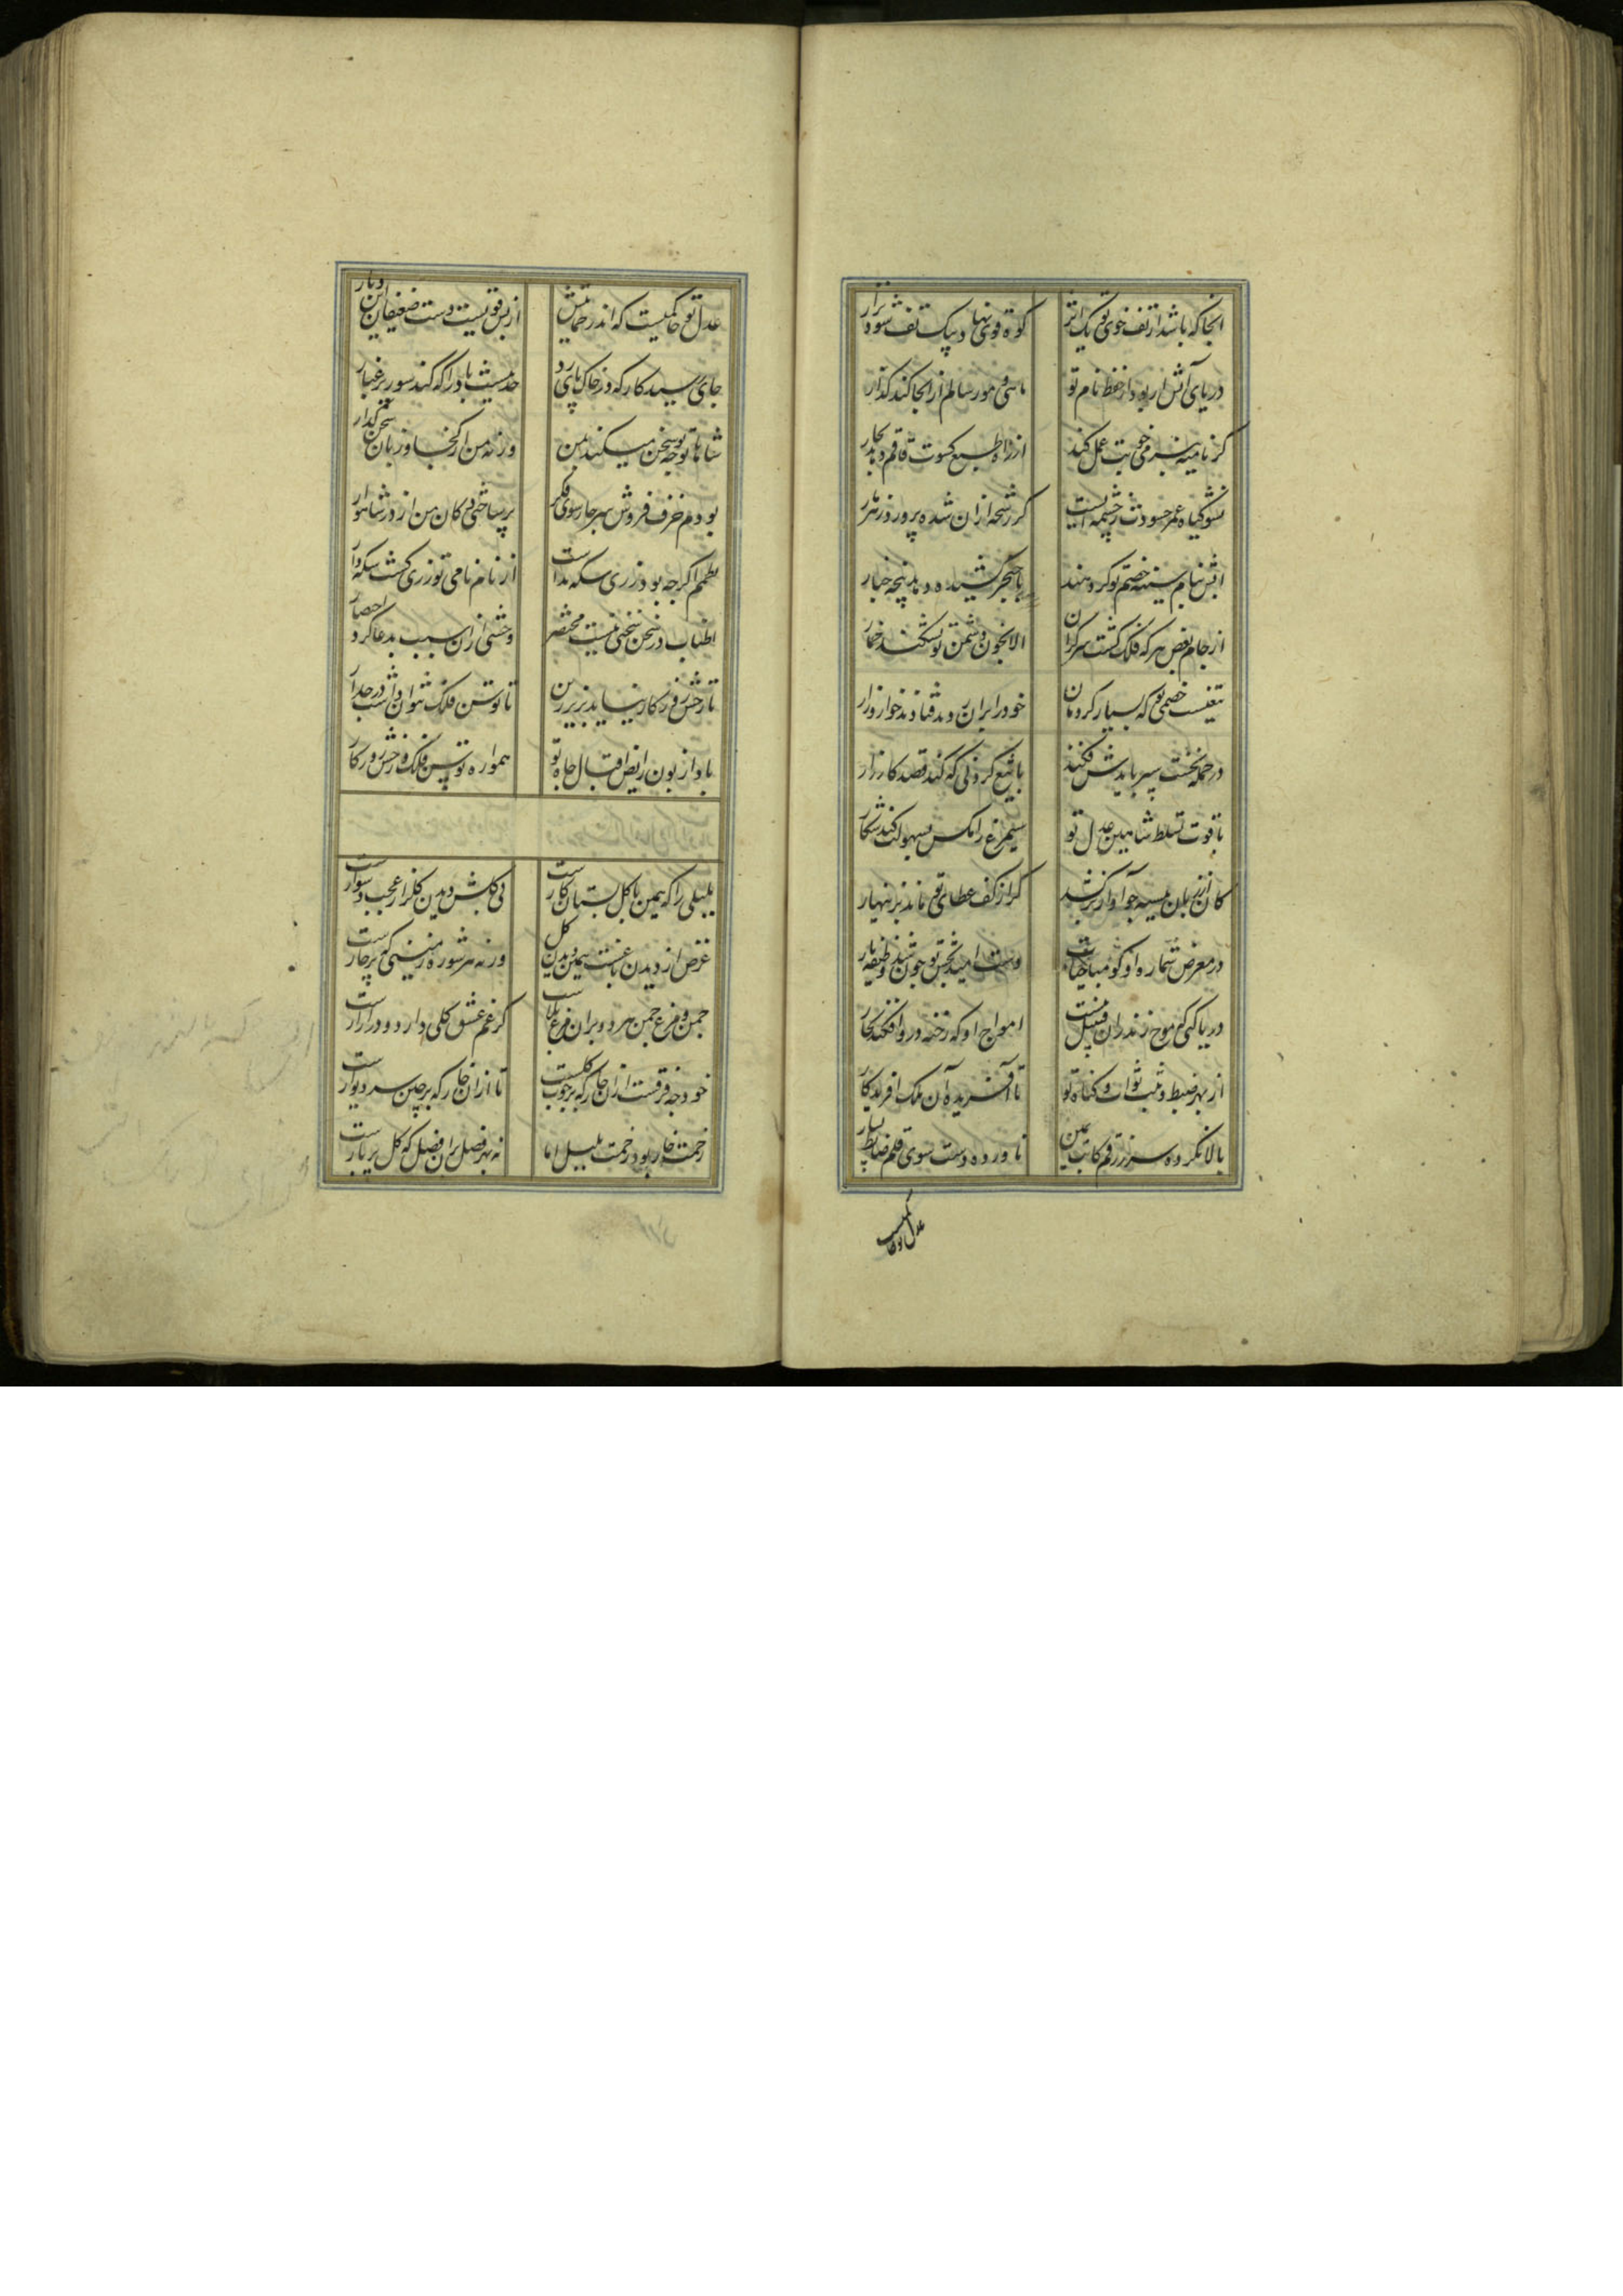 انجا که باشد از تف خوی تو یک اثر کوه قوی نهاد بیک تف شود نزار
دریای آتش ار بود از حفظ نام تو ماهی و مور سالم از انجا کند گذار
گر نامیه بنرمی خویت عمل کند از راه طبع کسوت قاقم دهد بخار
نشو گیاه عمر حسودت ز چشمه ایست کز رشحه ازان شده پرورده زهر مار
آتش نیام سینه خصم تو گر دهند با خنجر کشیده دمد پنجه چنار
از جام بغض هر که فلک گشت سرگران الا بخون دشمن تو نشکند خمار
تیغیست خصمی تو که بسیار گردنان خود را بران دمند و فتادند خوار و زار
در حمله نخست سپر بایدش فکند با تیغ کز دلی که کند قصد کارزار
با قوت تسلط شاهین عدل تو سیمرغ را مکس بسهولت کند شکار
کان از زبان تیشه جو آواز برکشد گر از کف عطای تو ماند بزینهار
در معرض شماره او گو میا حیات دست امید بخش تو چون شد وظیفه بار
دریا کی که موج زند زر ازان منست امواج او که رخنه در و افکند بخار
از بهر ضبط و ثبت ثواب و گناه تو تا آفریده آن ملک آفریدکار
بالا نکرده سر ز رقم کاتب یمین ناورده دست سوی قلم ضابط یسار
عدل تو حاکمیست
عدل تو حاکمیست که اندر حمایتش از بس قویست دست ضعیفان این دیار
جای رسید کار که در خاک پای رد حد نیست باد را که کند سور بر غبار
شاها توجه تو سخن میکند بمن ورنه من از کجا و زبان سخن گذار
بودم خزف فروش سر چار سوی فکر پر ساختی دکان من از در شاهوار
نظمم اگر چه بود زری سکه نداشت از نام نامی تو زری گشت سکه دار
اطناب در سخن سخنی نیست مختصر وحشی ازان سبب بدعا کرد اختصار
تا رخش روزگار نیاید بزیر زین تا توسن فلک نتوان داشت در جدار
بادا زبون رایض اقبال جاه تو همواره توسن فلک و رخش روزگار
بلبلی را که همین با گل بستان کارست بی گلش دیدن گلزار عجب دشوارست
غرض از دیدن باغست همین دیدن گل ورنه هر شوره زمینی که پر خارست
چمن و مرغ چمن هر دو بران مرغ بلاست گر غم عشق گلی دارد و در آزارست
خود چه فرقست ازان خار که بر چوب گلست تا ازان خار که بر چین سر دیوارست
زحمت خار بود زحمت بلبل اما نه بهر فصل بران فصل که گل بر بارست